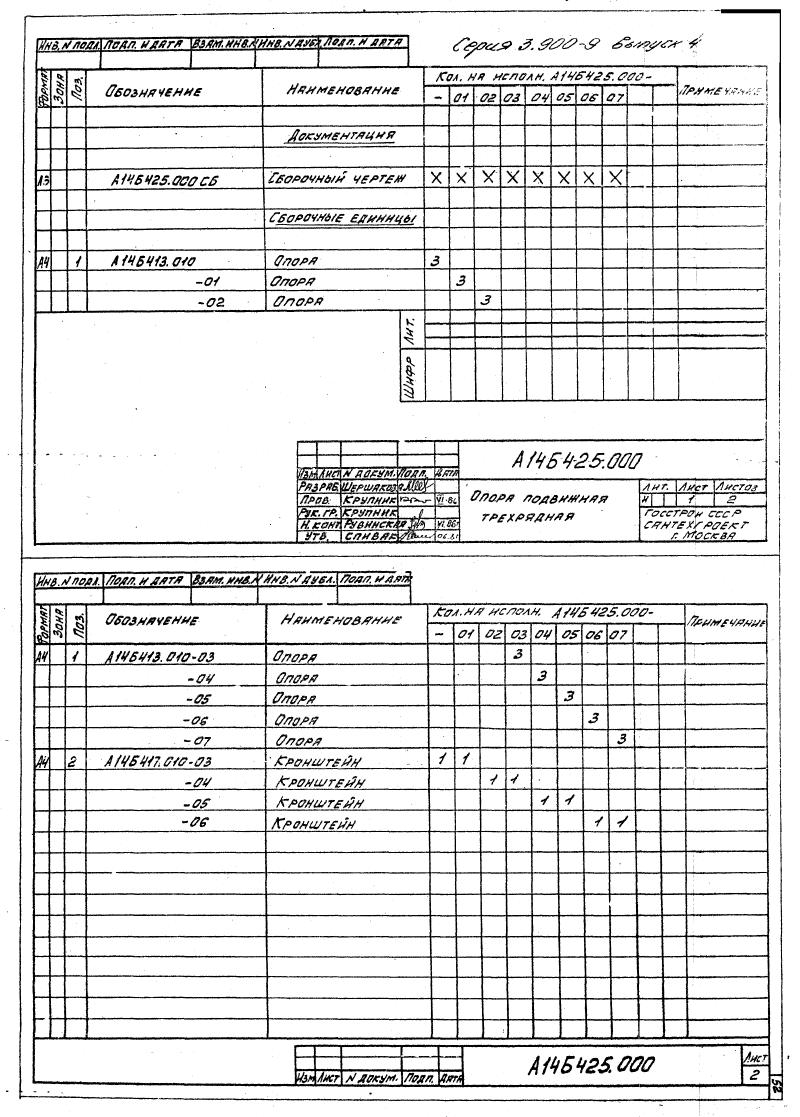 Серия 3.900-9 Выпуск 4
Инв. N подл. Подп. и дата Взам. инв. N Инв. N дубл. Подп. и дата
Формат Зона Поз. Обозначение Наименование Кол. на исполн. А14Б425.000- Примечание
- 01 02 03 04 05 06 07
Документация
А3 А14Б425.000 СБ Сборочный чертеж X X X X X X X X
Сборочные единицы
А4 1 А14Б413.010 Опора 3
-01 Опора 3
-02 Опора 3
Лит.
Шифр
А14Б425.000
Изм Лист N докум. Подп. Дата
Разраб.
Пров. Крупник VI-86
Рук. гр. Крупник
Н. конт. Рувинская VI.86
Утв. Спивак
Опора подвижная
трехрядная
Лит. Лист Листов
И 1 2
Госстрой СССР
Сантехпроект
г. Москва
Инв. N подл. Подп. и дата Взам. инв. N Инв. N дубл. Подп. и дата
Формат Зона Поз. Обозначение Наименование Кол. на исполн. А14Б425.000- Примечание
- 01 02 03 04 05 06 07
А4 1 А14Б413.010-03 Опора 3
-04 Опора 3
-05 Опора 3
-06 Опора 3
-07 Опора 3
А4 2 А14Б417.010-03 Кронштейн 1 1
-04 Кронштейн 1 1
-05 Кронштейн 1 1
-06 Кронштейн 1 1
Изм Лист N докум. Подп. Дата
А14Б425.000
Лист
2